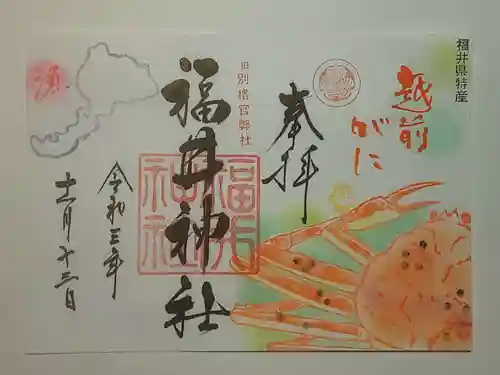 福井県特産
越前
がに
奉拝
旧別格官幣社
福井神社
福井
神社
令和三年
十一月十三日